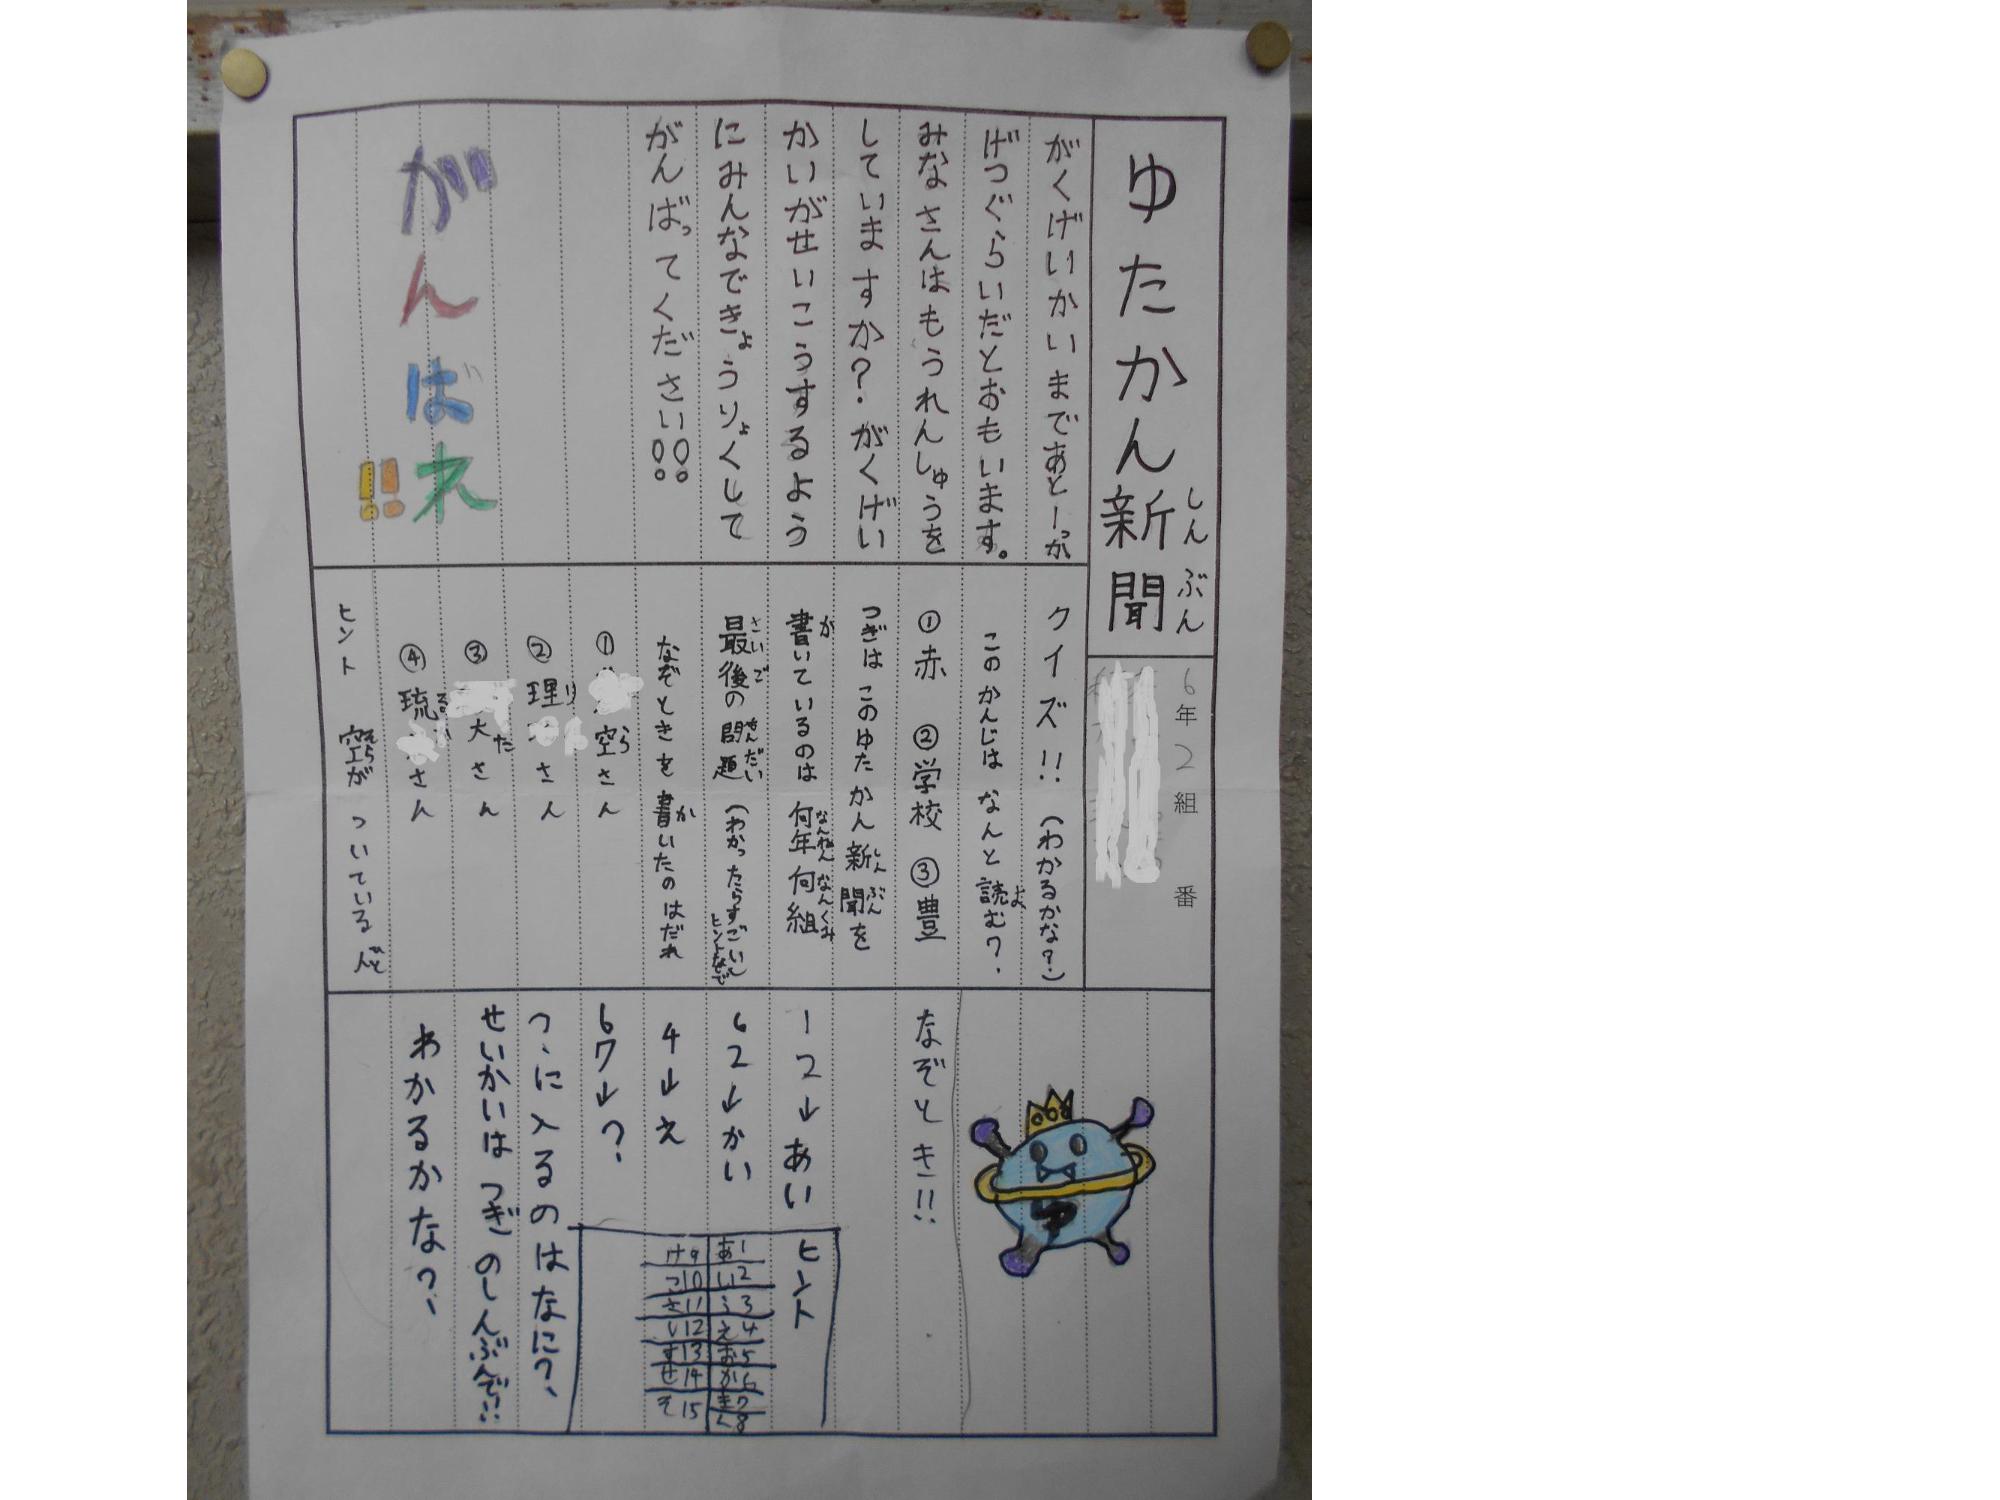 ゆたかん新聞
しんぶん
6年2組 番
がくげいかいまであと一っか
げつぐらいだとおもいます。
みなさんはもうれんしゅうを
していますか?がくげい
かいがせいこうするよう
にみんなできょうりょくして
がんばってください!!
がんばれ!!
クイズ!!(わかるかな?)
このかんじはなんと読む?
よ
①赤 ②学校 ③豊
つぎはこのゆたかん新聞を
しんぶん
書いているのは何年何組
か なんねんなんくみ
最後の問題(わかったらすごいし
さいご もんだい
ヒントなで
なぞときを書いたのはだれ
か
① 空さん
ら
②理 さん
り
③ 大さん
た
④琉 さん
ヒント 空がついている人
そら ひと
なぞとき!!
12→あい
62→かい
4→え
67→?
ヒント
あ1
い2
う3
え4
お5
か6
き7
く8
け9
こ10
さ11
し12
す13
せ14
そ15
?に入るのはなに?
せいかいはつぎのしんぶんで!!
わかるかな?